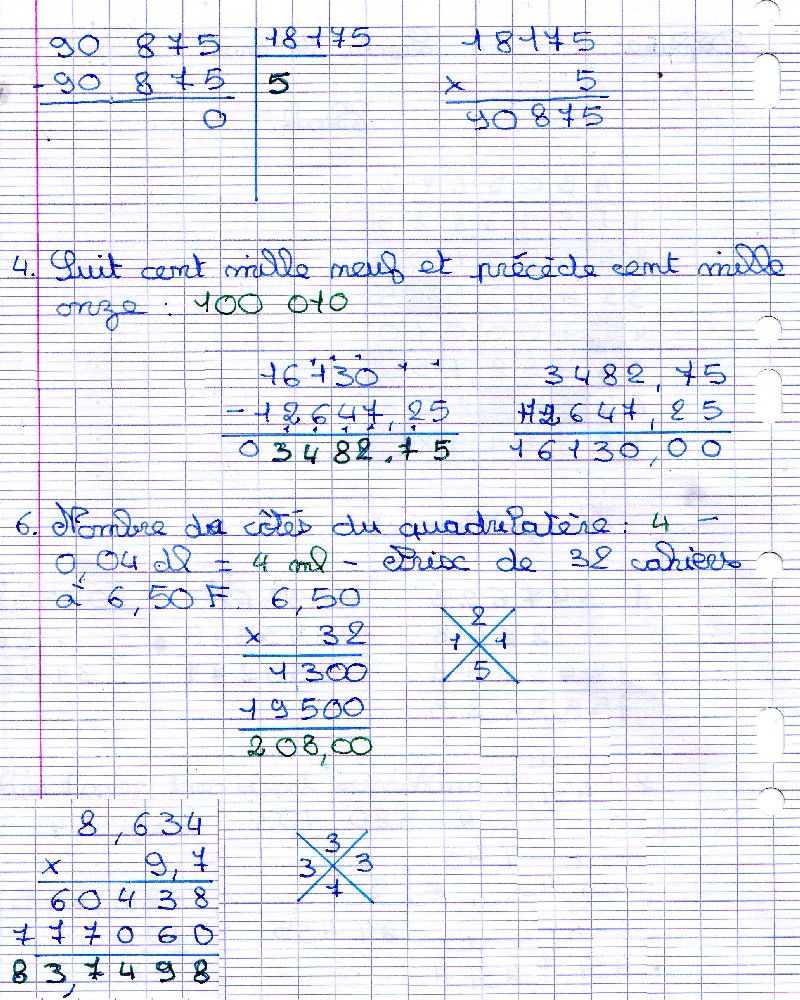 90 875 | 18175        18175
- 90 875 | 5        x 5
0        90875
4. Suit cent mille neuf et précède cent mille
onze : 100 010
16130        3482,75
- 12647,25        +12647,25
03482,75        16130,00
6. Nombre de côtés du quadrilatère : 4 -
0,04 dl = 4 ml - Prix de 32 cahiers
à 6,50 F. 6,50
x 32        2
1300        1 1
19500        5
208,00
8,634
x 9,7        3
60438        3 3
777060        7
83,7498